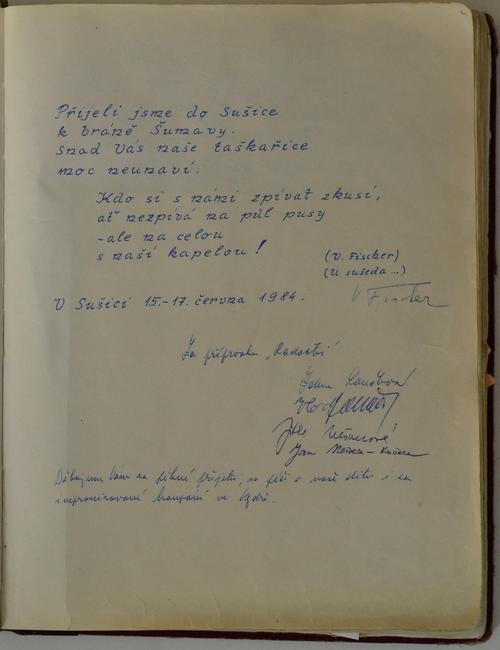 Přijeli jsme do Sušice
k bráně Šumavy.
Snad Vás naše taškařice
moc neunaví.
Kdo si s námi zpívat zkusí,
ať nezpívá na půl pusy
-ale na celou
s naší kapelou!
(V. Fischer)
(U suseda...)
V Sušici 15.-17. června 1984.
V Fischer
Za přípravu „Radosti"
Děkujeme Vám za pěkné přijetí, za péči o naše
improvizované koupání ve